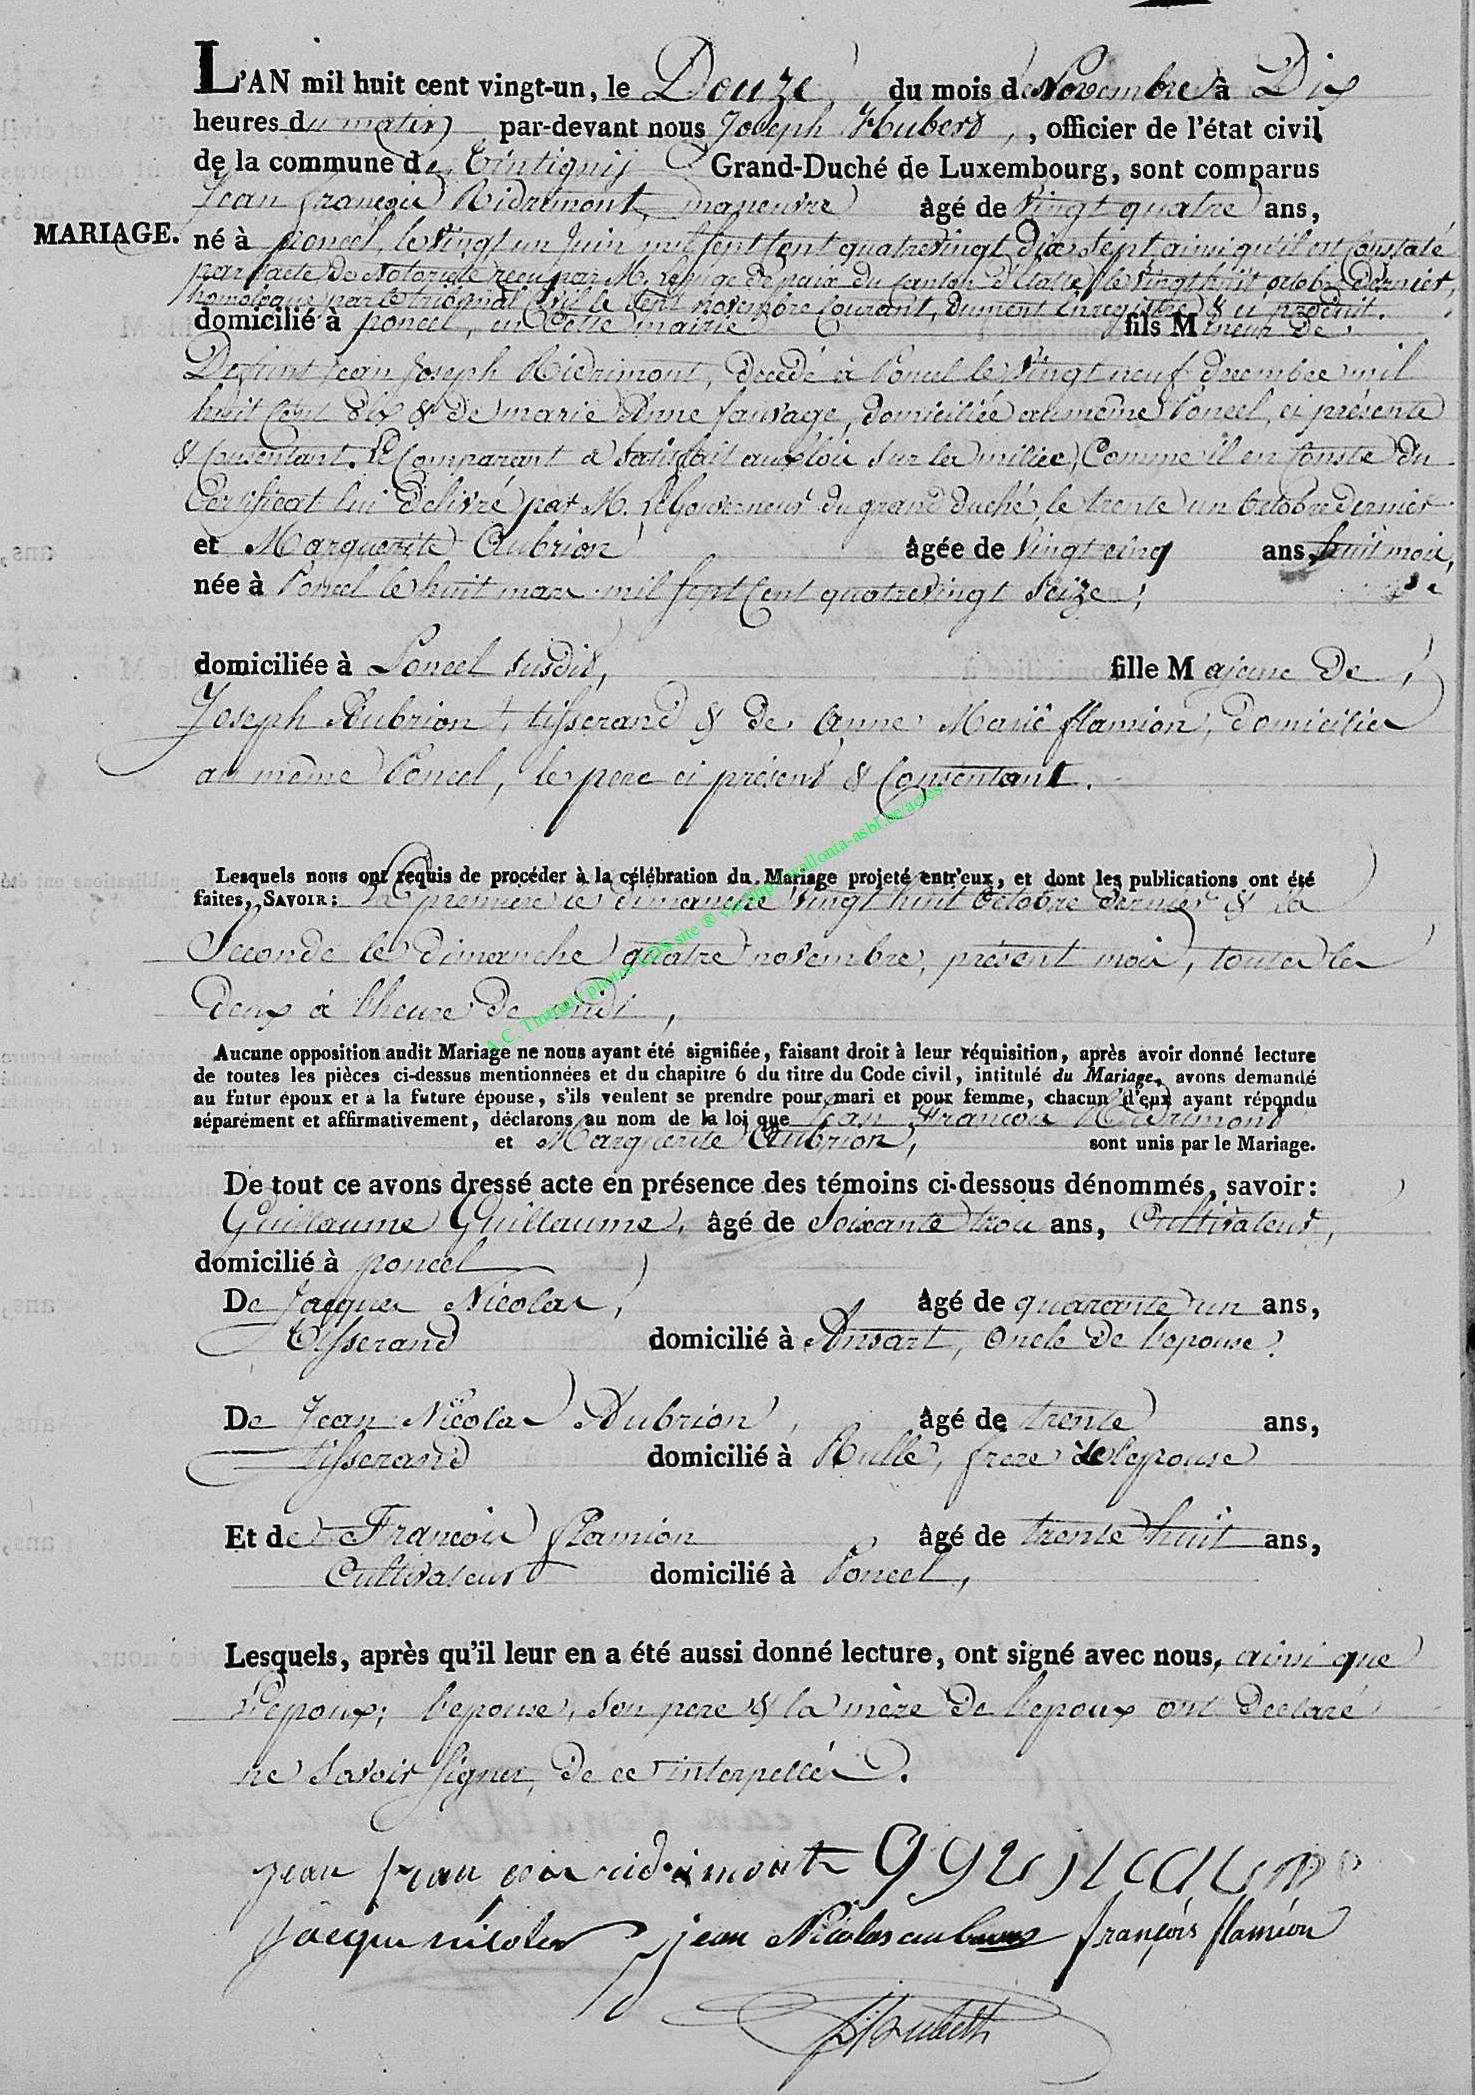 L'AN mil huit cent vingt-un, le Douze du mois de Novembre à Dix
heures du matin par-devant nous Joseph Hubert, officier de l'état civil
de la commune de Tintigny Grand-Duché de Luxembourg, sont comparus
Jean François Ridremont, manœuvre âgé de vingt quatre ans,
MARIAGE. né à poncel, le vingt un Juin mil sept cent quatrevingt dix sept ainsi qu'il est constaté
par l'acte de Notoriété reçu par M. le juge de paix du canton d'Etalle, le vingt huit octobre dernier,
homologué par le tribunal civil le sept novembre courant, dument enregistré & ci produit.
domicilié à poncel, en cette mairie fils Mineur de
Defunt Jean Joseph Ridrimont, décédé à Poncel le vingt neuf decembre mil
huit cent dix & de marie Anne Sauvage, domiciliée au même Poncel, ci présente
& consentant. Le Comparant a satisfait aux lois sur la milice, Comme il en conste du
Certificat lui délivré par M. le Gouverneur du grand duché, le trente un octobre dernier
et Marguerite Aubrion âgée de vingt cinq ans huit mois,
née à Poncel le huit mars mil sept Cent quatrevingt seize,
domiciliée à Poncel susdit, fille Majeure De
Joseph Aubrion, tisserand & de Anne Marie flamion, domiciliés
au même Poncel, le père ci présent & Consentant.
Lesquels nous ont requis de procéder à la célébration du Mariage projeté entr'eux, et dont les publications ont été
faites, SAVOIR: La première le dimanche vingt huit Octobre dernier & la
Seconde le dimanche quatre novembre, présent mois, toutes les
deux à l'heure de midi,
Aucune opposition audit Mariage ne nous ayant été signifiée, faisant droit à leur réquisition, après avoir donné lecture
de toutes les pièces ci-dessus mentionnées et du chapitre 6 du titre du Code civil, intitulé du Mariage, avons demandé
au futur époux et à la future épouse, s'ils veulent se prendre pour mari et pour femme, chacun d'eux ayant répondu
séparément et affirmativement, déclarons au nom de la loi que Jean François Ridrimont
et Marguerite Aubrion, sont unis par le Mariage.
De tout ce avons dressé acte en présence des témoins ci-dessous dénommés, savoir:
Guillaume Guillaume, âgé de Soixante trois ans, Cultivateur,
domicilié à poncel
De Jacques Nicolas, âgé de quarante un ans,
Tisserand domicilié à Ansart, oncle de l'epouse.
De Jean Nicolas Aubrion, âgé de trente ans,
tisserand domicilié à Rulle, frere de l'epouse
Et de François flamion âgé de trente huit ans,
Cultivateur domicilié à Poncel,
Lesquels, après qu'il leur en a été aussi donné lecture, ont signé avec nous, ainsi que
l'epoux; l'epouse, son pere & la mère de l'epoux ont declaré
ne savoir signer, de ce interpellés.
jean fran cois ridrimont
jacque nicolas jean Nicolas aubrion françois flamion
A.C. Tintigny photos LDS site ® via http://wallonia-asbl.be/actes